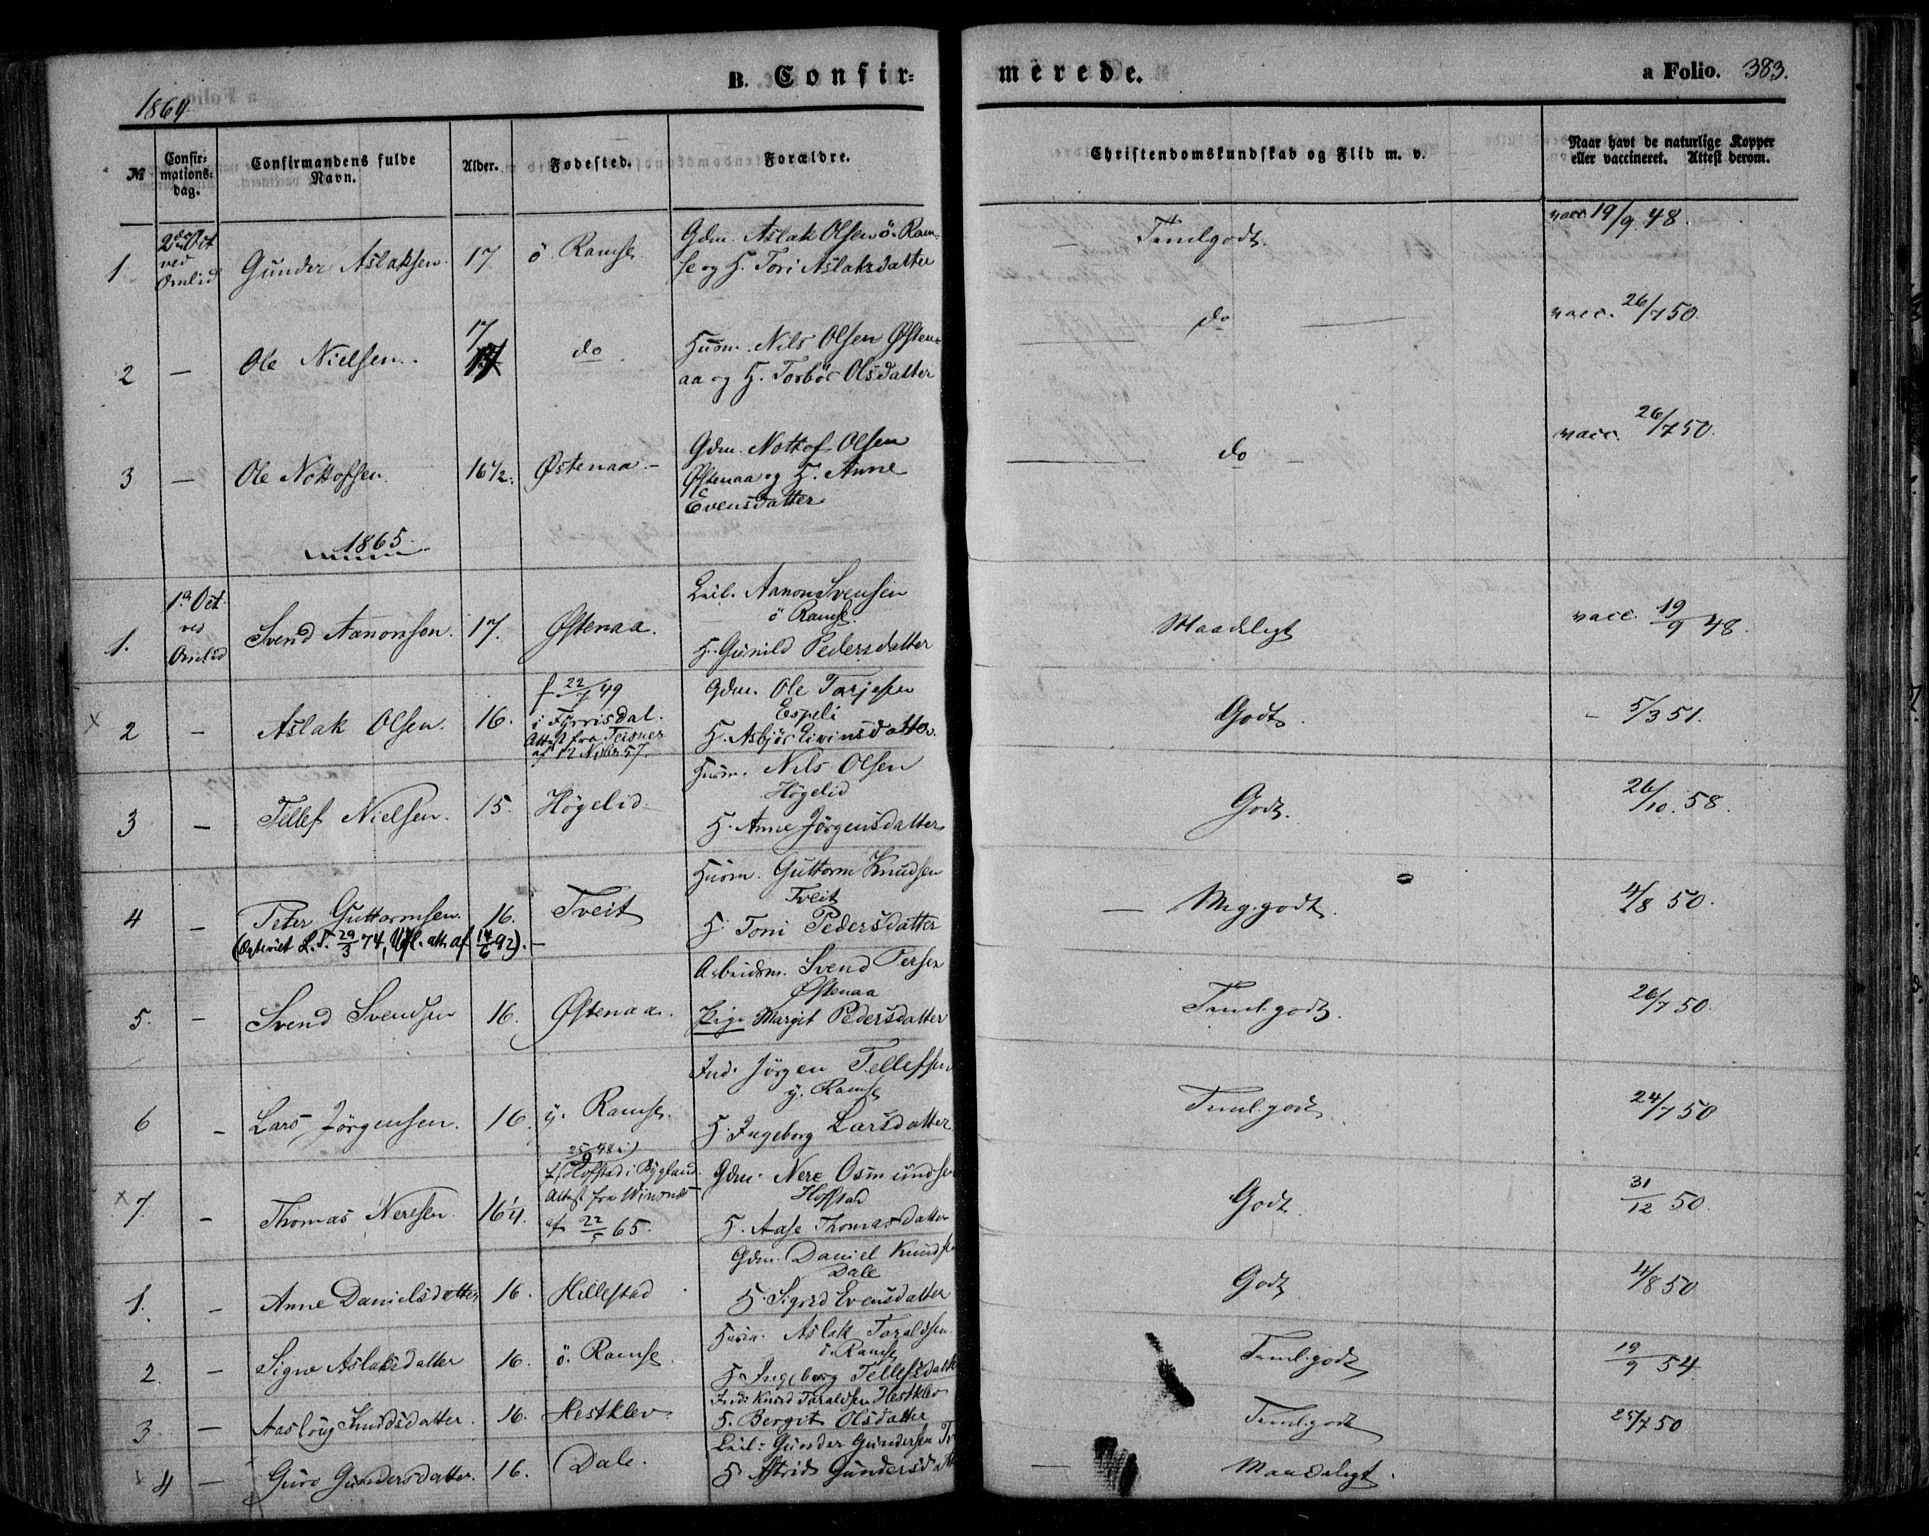 B. Confir-
merede.
a Folio. 383.
1864.
№
Confir-
mations-
dag.
Confirmandens fulde
Navn.
Alder.
Fødested.
Forældre.
Christendomskundskab og Flid m. v.
Naar havt de naturlige Kopper
eller vaccineret. Attest derom.
1 2den Oct ved Omlid Gunder Aslaksen 17 ö. Ramse
Gdm. Aslak Olsen ö. Ram-
se og H. Tori Aslaksdatter
Temlgodt. vacc. 19/9 48.
2 — Ole Nielsen. 17 do
Husm. Nils Olsen Østen-
aa og H. Torbör Olsdatter
do vacc. 26/7 50.
3 — Ole Nottofsen. 16 1/2. Østenaa —
Gdm. Nottof Olsen
Østenaa og H. Anne
Evensdatter
do vacc. 26/7 50.
1865.
1. 1ª Oct. ved Omlid Svend Aanonson. 17. Østenaa.
Leil. Aanon Svensen
ö Ramse.
H. Gunild Pedersdatter
Maadeligt vacc. 19/9 48.
x 2 — Aslak Olsen. 16. f. 22/7 49
i Fyrrisdal.
Attest fra Teisner
af 12 Novbr 57.
Gdm. Ole Tarjesen
Espeli
H. Asbjör Eivinsdatter.
Godt. — 5/3 51.
3 — Tellef Nielsen. 15. Högelid
Husm. Nils Olsen
Högelid
H. Anne Jörgensdatter
Godt. 26/10. 58.
4 — Peter Guttormsen. 16. Tveit
Husm. Guttorm Knudsen
Tveit
H. Toni Pedersdatter
Mg.godt. 4/8 50.
L. T. 29/3 74, att. af 14/6 92). —
5. — Svend Svendsen 16. Østenaa.
Arbeidsm. Svend Persen
Østenaa
Pige Margit Pedersdatter
Teml.godt. 26/7 50.
6 — Lars Jörgensen. 16. y. Ramse.
Ind. Jörgen Tellefsen
y. Ramse
H. Ingeborg Larsdatter
Teml.godt. 24/7 50
x 7. — Thomas Neresen. 16 1/4.
f. 25/9 48 i
Hofstad i Bygland.
Attest fra
af 22/5 65.
Gdm. Nere Osmundsen
Hofstad
H. Aase Thomasdatter
Godt. 31/12 50.
1. — Anne Danielsdatter 16. Hillestad
Gdm. Daniel Knudsen
Dale
H. Sigrid Evensdatter
Godt 4/8 50
2. — Signe Aslaksdatter 16. ö. Ramse.
Husm. Aslak Taraldsen
ö. Ramse
H. Ingeborg Tellefsdatter
Teml.godt 19/9 54
3. — Aaslöug Knudsdatter. 16. Hestklev
Ind. Knud Taraldsen Hestklev
H. Bergit Olsdatter
Teml.godt 25/7 50
x 4 — Guro Gundersdatter. 16. Dale.
Leil. Gunder Gundersen
H. Astrid Gundersdatter
Maadeligt.